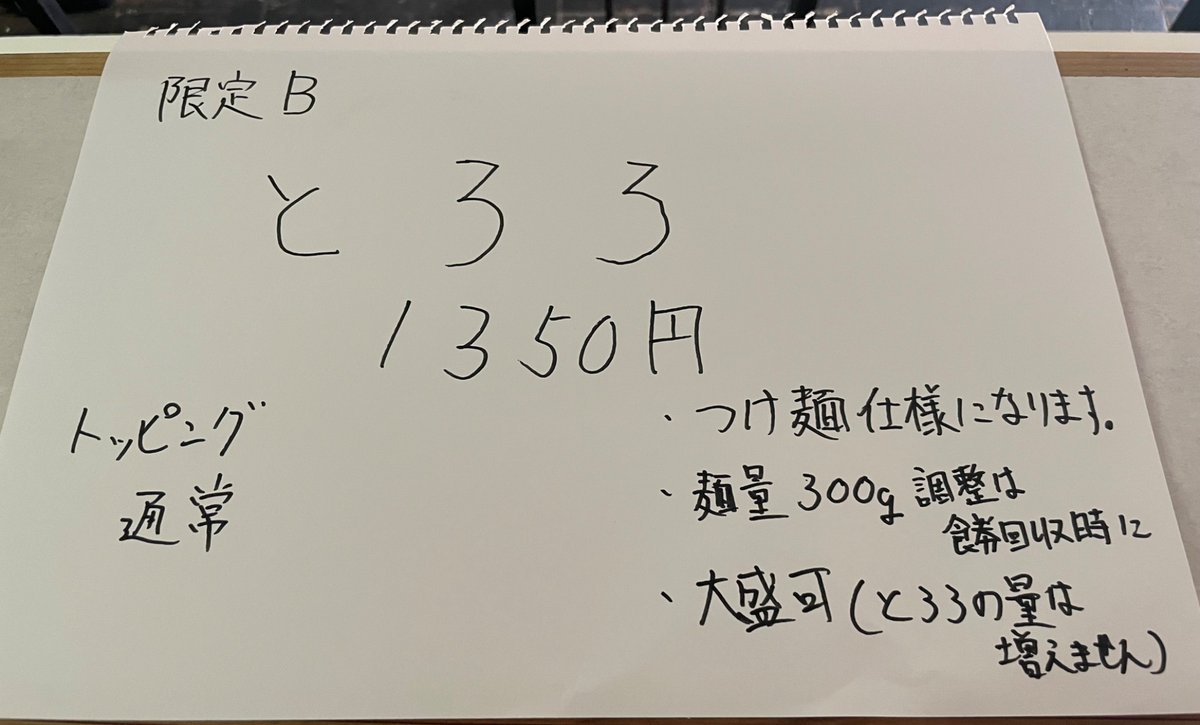 限定B
とろろ
1350円
トッピング
通常
・つけ麺仕様になります。
・麺量300g 調整は
食券回収時に
・大盛可(とろろの量は
増えません)